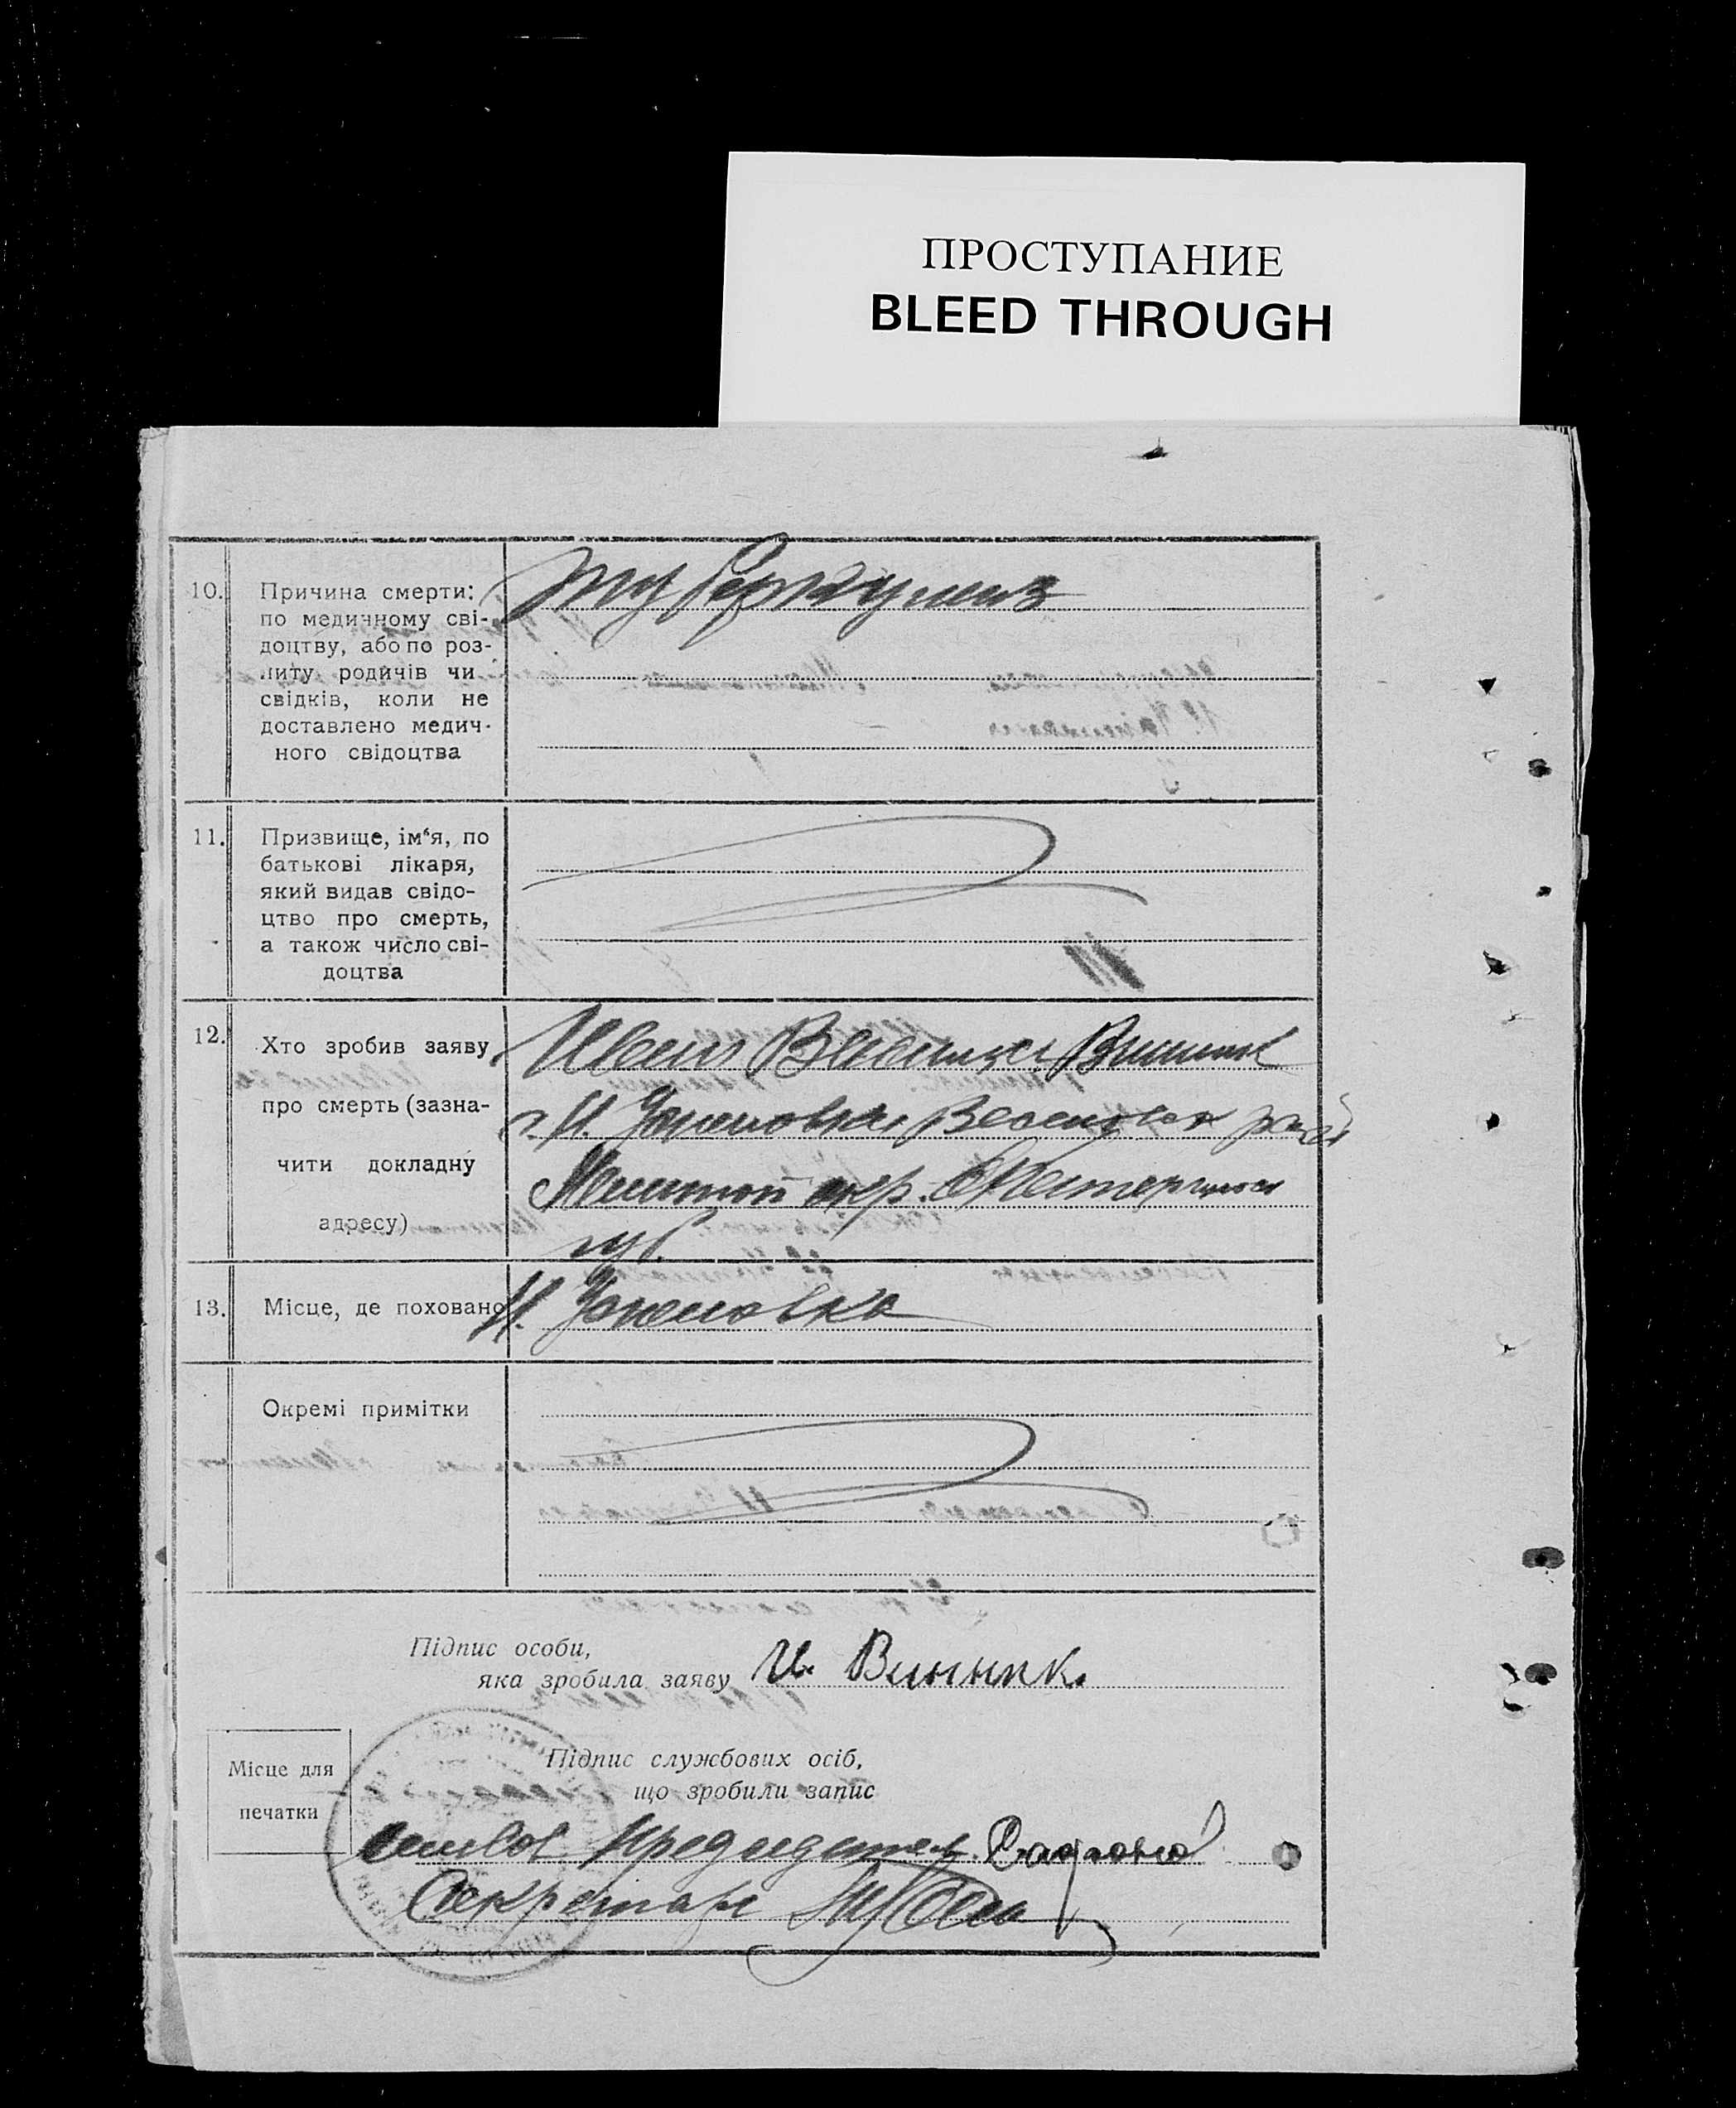 ПРОСТУПАНИЕ
BLEED THROUGH
10.
Причина смерти:
по медичному сві-
доцтву, або по роз-
питу родичів чи
свідків, коли не
доставлено медич-
ного свідоцтва
туберкулез
11.
Призвище, ім‘я, по
батькові лікаря,
який видав свідо-
цтво про смерть,
а також число сві-
доцтва
12.
Хто зробив заяву
про смерть (зазна-
чити докладну
адресу)
Иван Винник
губ.
13.
Місце, де поховано
Окремі примітки
Підпис особи,
яка зробила заяву
И. Винник.
Місце для
печатки
Підпис службових осіб,
що зробили запис
Председатель
Секретарь